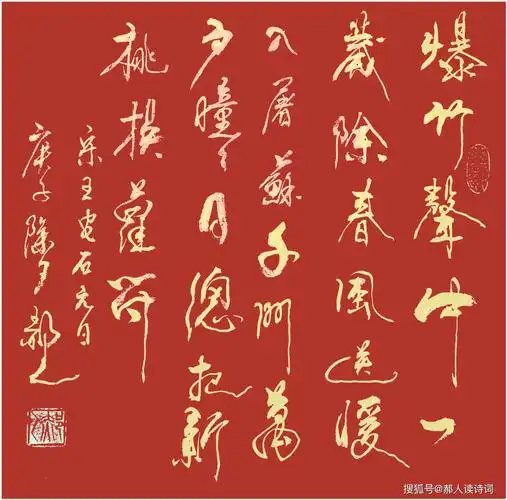 爆竹聲中一
歲除春風送暖
入屠蘇千門萬
戶曈々日總把新
桃換舊符
宋王安石元日
庚子除夕郝人
搜狐号@郝人读诗词